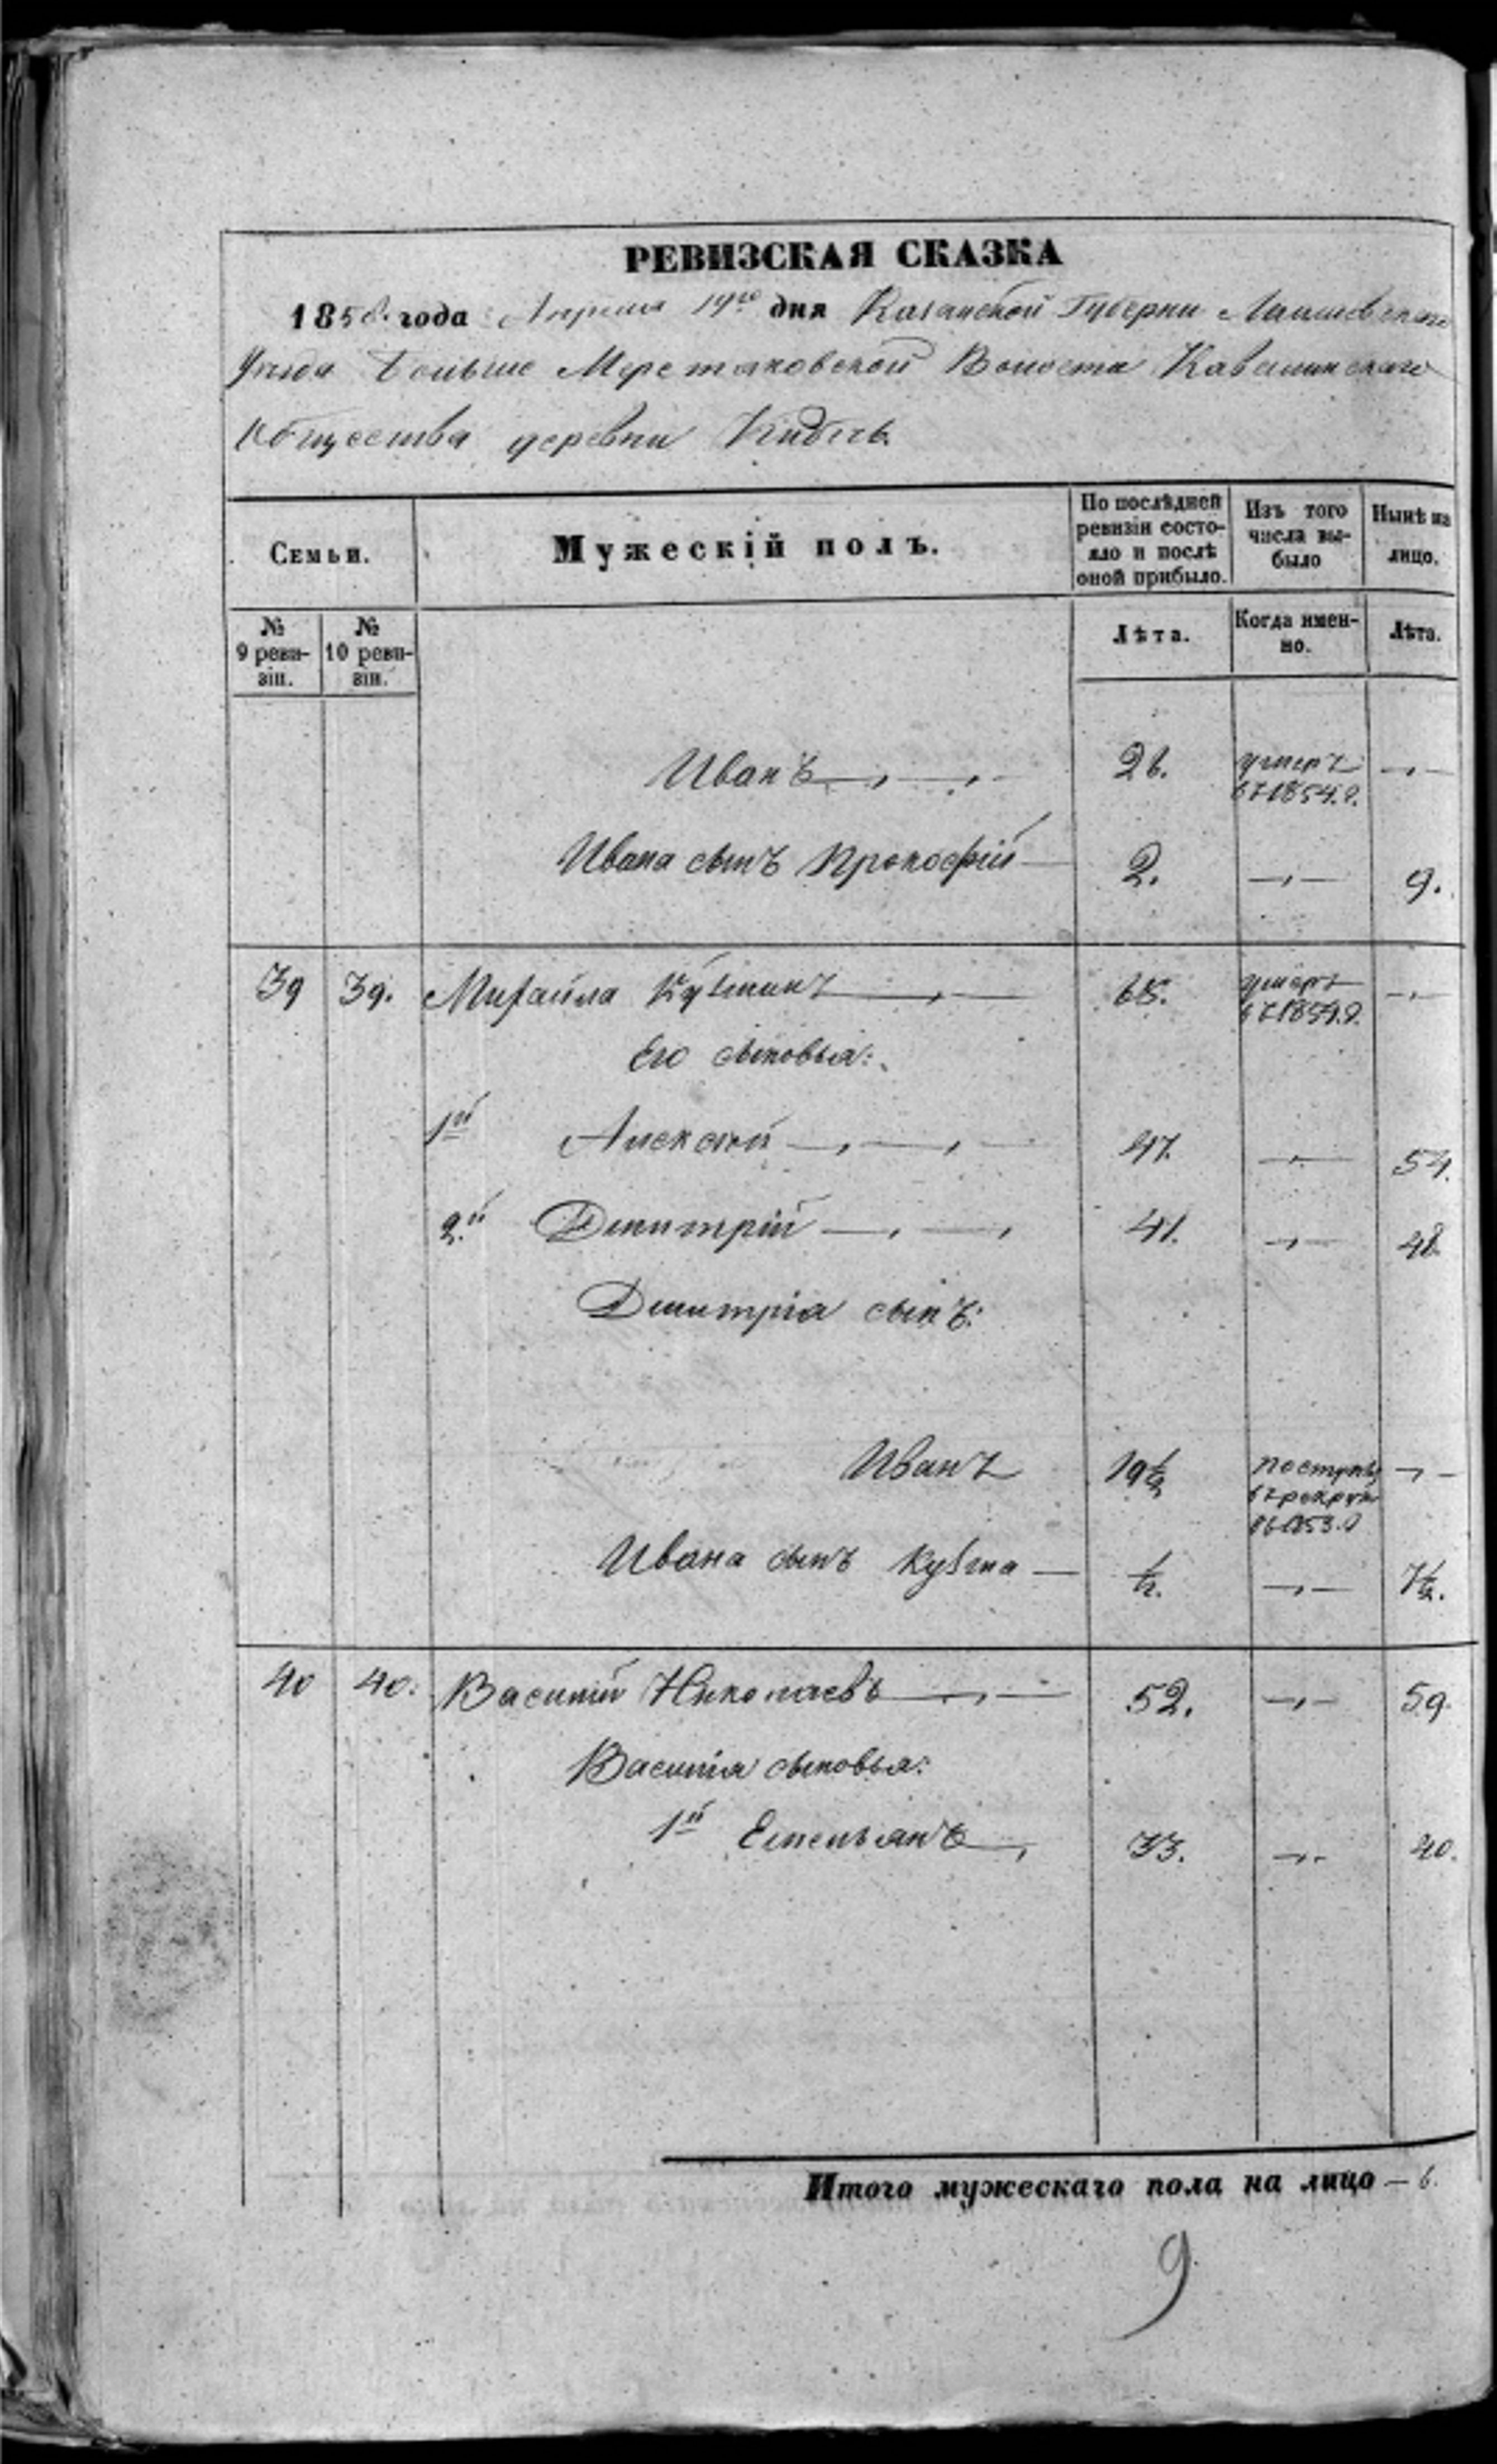 РЕВИЗСКАЯ СКАЗКА
1858 года Апреля 19го дня Казанской Губернии Лаишевскаго
Уезда Больше Меретяковской Волости Кавалинскаго
Общества деревни
Семьи.
Мужескій полъ.
По послѣдней ревизіи состояло и послѣ оной прибыло.
Изъ того числа выбыло
Нынѣ на лицо.
№ 9 ревизіи.
№ 10 ревизіи.
Лѣта.
Когда именно.
Лѣта.
Иванъ 26. умеръ въ 1854.г.
Ивана сынъ Прокофій 2. 9.
39 39. Михайла Кузминъ 65. умеръ въ 1854.г.
Его сыновья:
1й Алексѣй 47. 54.
2й Дмитрій 41. 48.
Дмитрія сынъ:
Иванъ 19½ поступ. въ рекруты въ 1853.г
Ивана сынъ Кузма ½. 7½.
40 40. Василій Николаевъ 52. 59.
Василія сыновья:
1й Емельянъ 33. 40.
Итого мужескаго пола на лицо — 6.
9